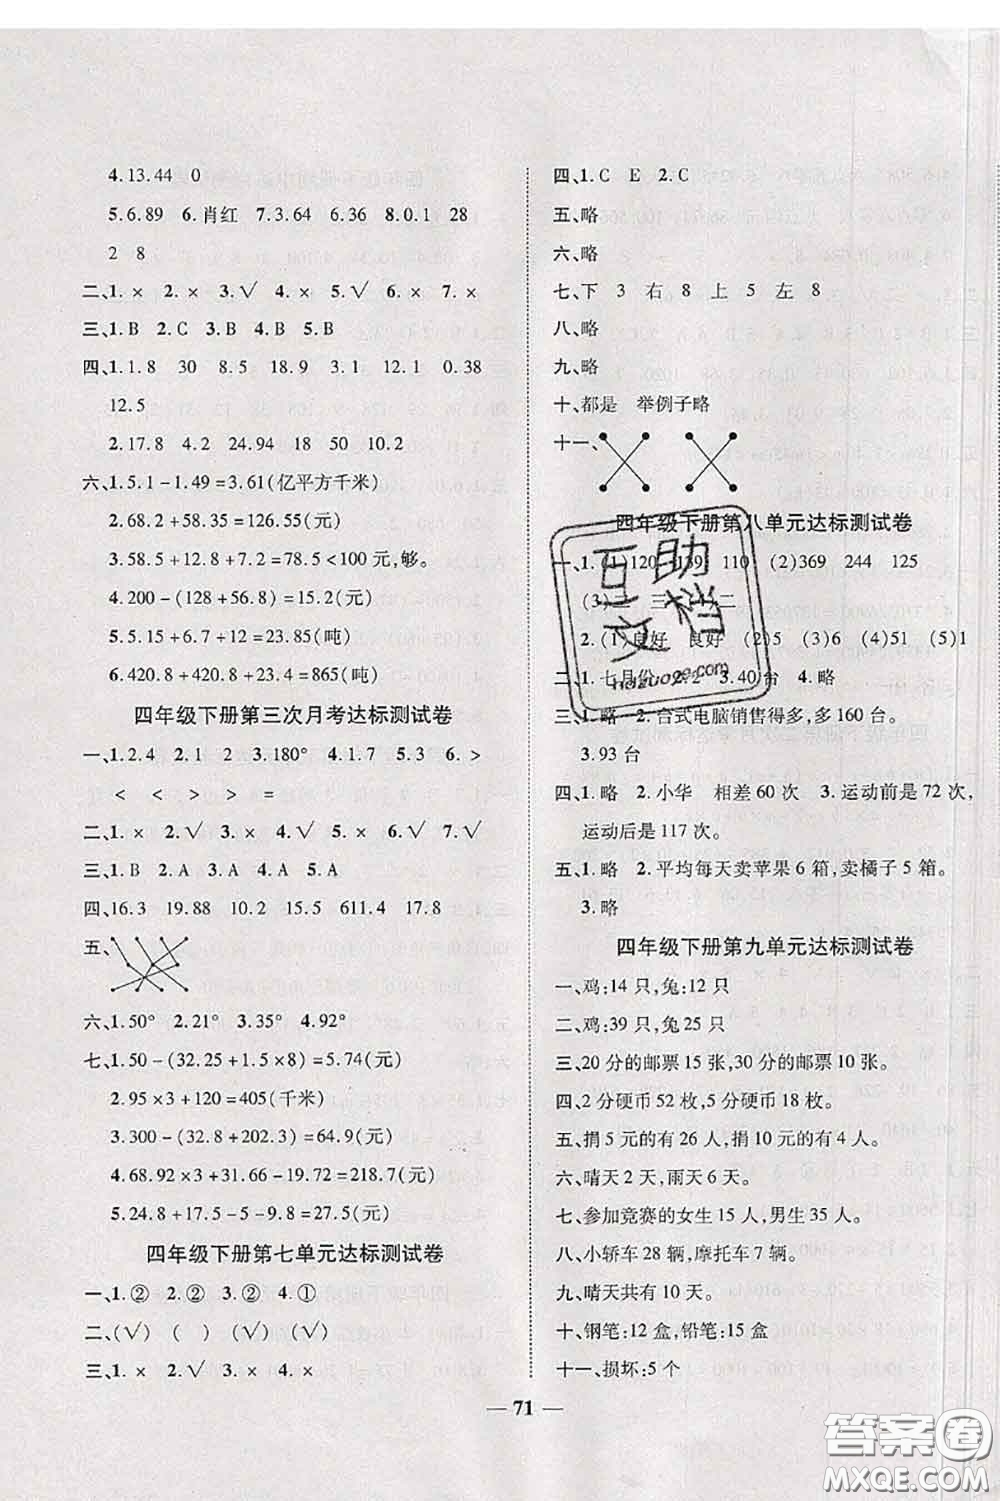 4.13.44　0
5.6.89　6.肖红　7.3.64　6.36　8.0.1　28
2　8
二、1.×　2.×　3.√　4.×　5.√　6.×　7.×
三、1.B　2.C　3.B　4.B　5.B
四、1.1.8　30　8.5　18.9　3.1　12.1　0.38
12.5
2.17.8　4.2　24.94　18　50　10.2
六、1.5.1－1.49＝3.61(亿平方千米)
2.68.2＋58.35＝126.55(元)
3.58.5＋12.8＋7.2＝78.5<100元,够。
4.200－(128＋56.8)＝15.2(元)
5.15.4＋6.6＋12＝34(吨)
6.420.8＋420.8＋23.4＝865(吨)
四年级下册第三次月考达标测试卷
一、1.2.4　2.1　2　3.180°　4.1.67　5.3　6.>
<　<　>　>　=
二、1.×　2.√　3.×　4.√　5.×　6.√　7.√
三、1.B　2.A　3.A　4.A　5.A
四、16.3　19.88　10.2　15.5　611.4　17.8
五、
六、1.50°　2.21°　3.35°　4.92°
七、1.50－(32.26＋1.5×8)＝5.74(元)
2.95×3＋120＝405(千米)
3.300－(32.8＋202.3)＝64.9(元)
4.68.92×3＋31.66－19.72＝218.7(元)
5.24.8＋17.5－5－9.8＝27.5(元)
四年级下册第七单元达标测试卷
一、1.②　2.②　3.②　4.①
二、(√)　(　)　(√)　(√)
三、1.×　2.√　3.×　4.×　5.×
四、1.C　E　2.C
五、略
六、略
七、下　3　右　8　上　5　左　8
八、略
九、略
十、都是　举例子略
十一、
四年级下册第八单元达标测试卷
一、1.(1)120　139　110　(2)369　244　125
(3)二　三　二
2.(1)良好　良好　(2)5　(3)6　(4)51　(5)1
二、1.七月份　2.2　3.40台　4.略
三、1.略　2.台式电脑销售得多,多160台。
3.93台
四、1.略　2.小华　相差60次　3.运动前是72次,
运动后是117次。
五、1.略　2.平均每天卖苹果6箱,卖橘子5箱。
3.略
四年级下册第九单元达标测试卷
一、鸡:14只,兔:12只
二、鸡:39只,兔25只
三、20分的邮票15张,30分的邮票10张。
四、2分硬币52枚,5分硬币18枚。
五、捐5元的有26人,捐10元的有4人。
六、晴天2天,雨天6天。
七、参加竞赛的女生15人,男生35人。
八、小轿车28辆,摩托车7辆。
九、晴天共有10天。
十、钢笔:12盒,铅笔:15盒
十一、损坏:5个
— 71 —
互助文档
huzuoge.com
答案圈
MXQE.COM